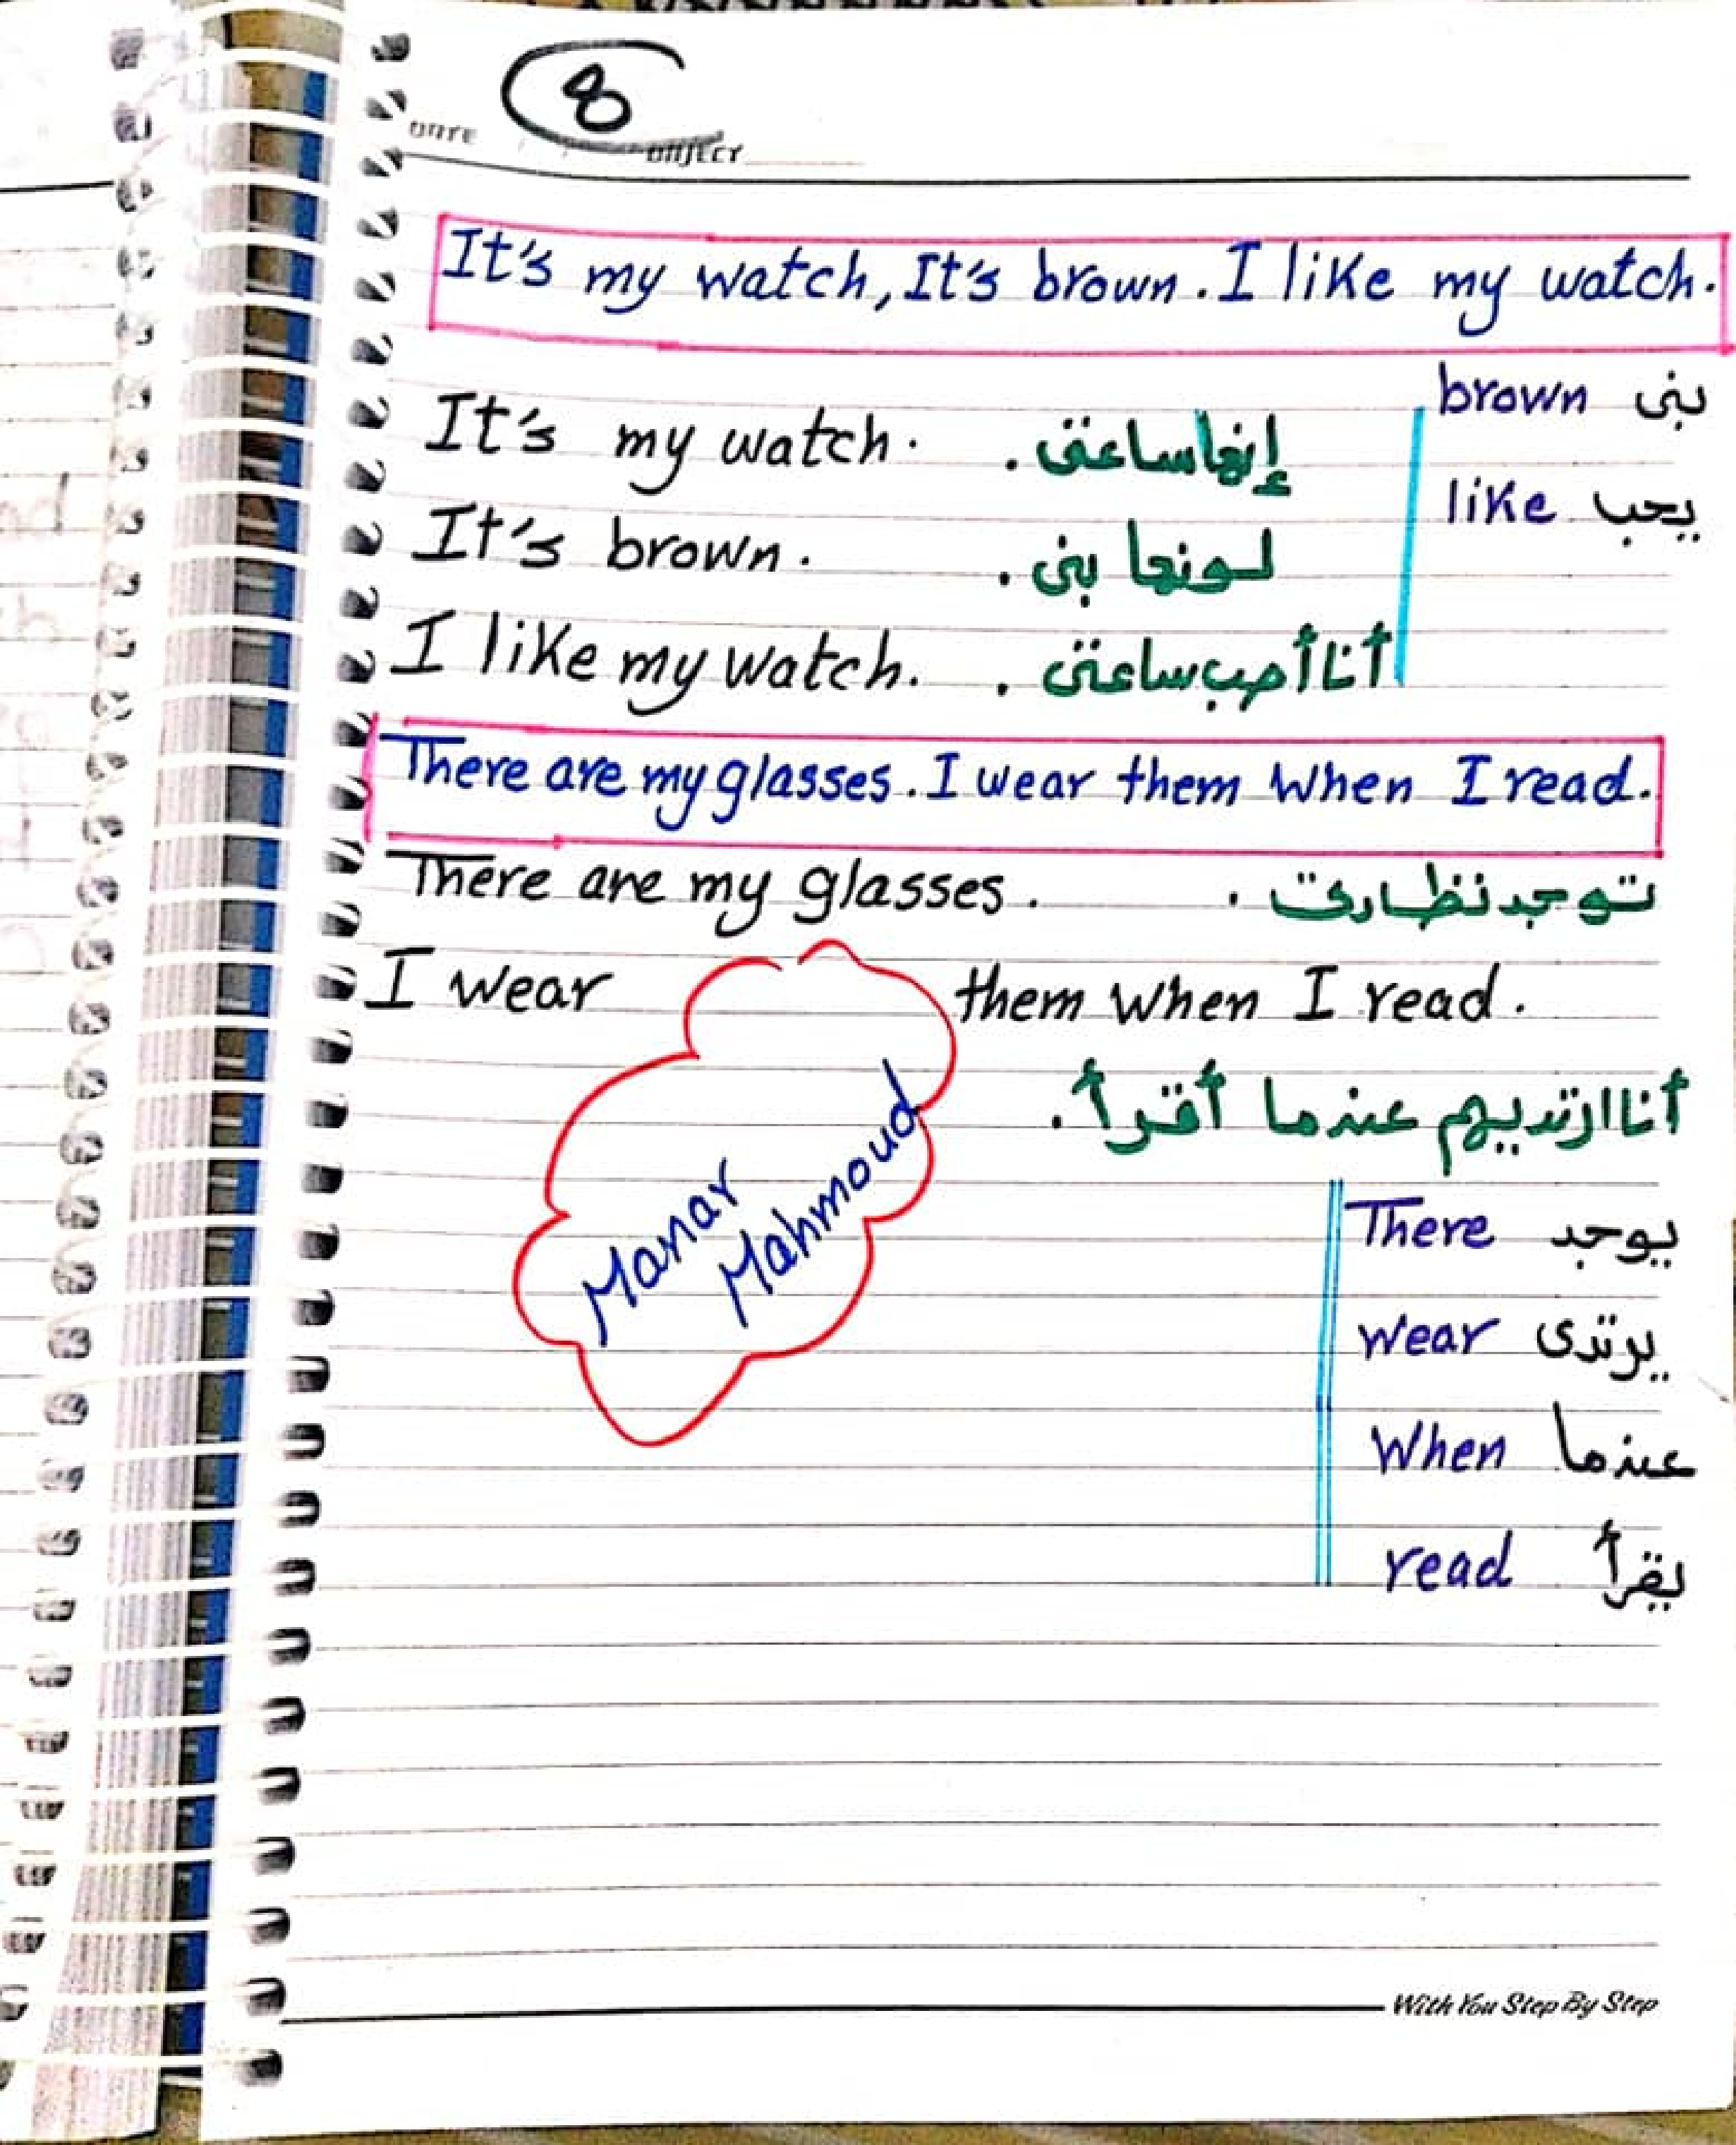 8
DATE
SUBJECT
It's my watch, It's brown. I like my watch.
brown بنى
It's my watch. إنها ساعتى.
like يحب
It's brown. لونها بنى.
I like my watch. أنا أحب ساعتى.
There are my glasses. I wear them when I read.
There are my glasses. توجد نظارتى.
I wear them when I read.
أنا ارتديهم عندما أقرأ.
Manar
Mahmoud
There يوجد
wear يرتدى
When عندما
read يقرأ
With You Step By Step